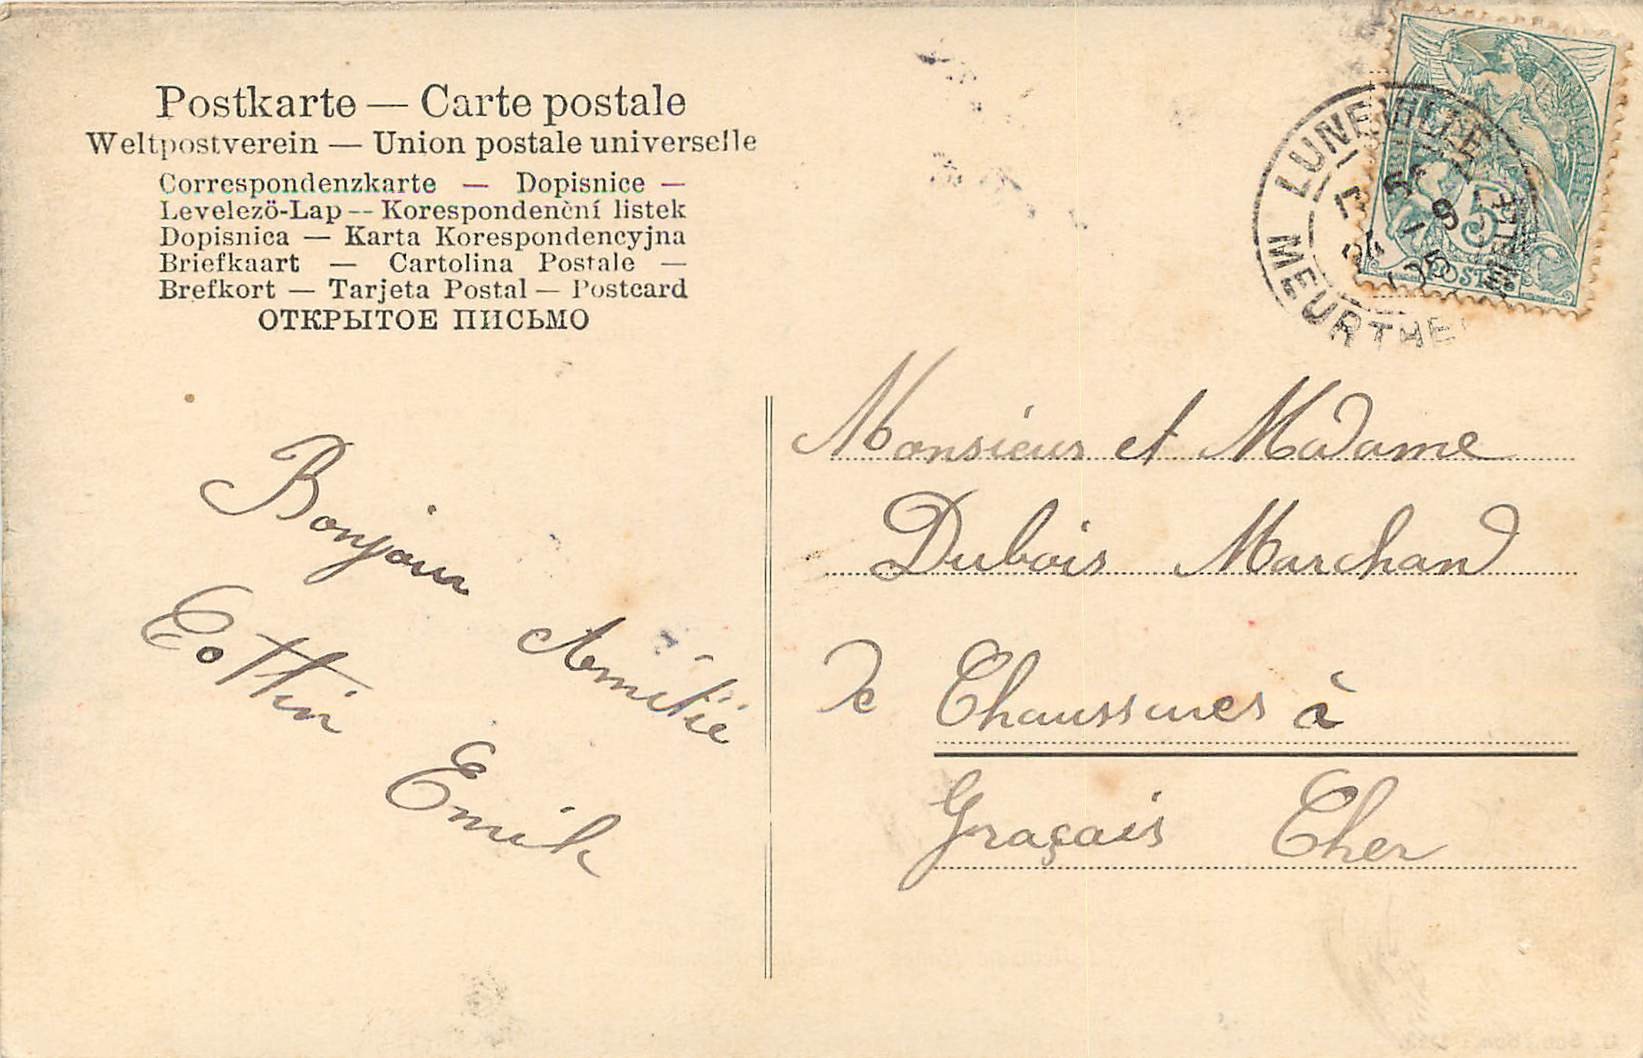 Postkarte — Carte postale
Weltpostverein — Union postale universelle
Correspondenzkarte — Dopisnice —
Levelezö-Lap -- Korespondenční listek
Dopisnica — Karta Korespondencyjna
Briefkaart — Cartolina Postale —
Brefkort — Tarjeta Postal — Postcard
ОТКРЫТОЕ ПИСЬМО
LUNEVILLE
MEURTHE
5
POSTES
Bonjour Amitié
Cottin Emile
Monsieur et Madame
Dubois Marchand
de Chaussures à
Graçais Cher